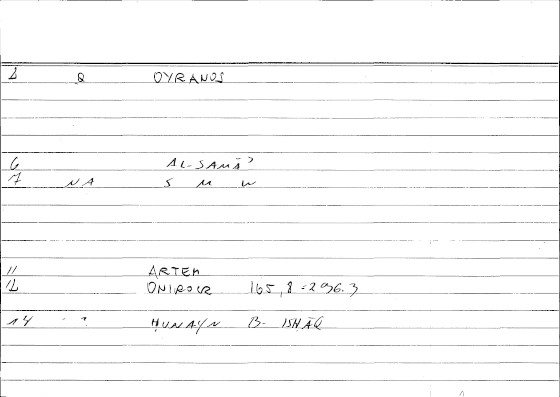 Q OYRANOS
6 AL-SAMĀʾ
7 NA S M W
11 ARTEM
12 ONIROCR 165,8 = 296.3
14 " " ḤUNAYN B- ISḤĀQ